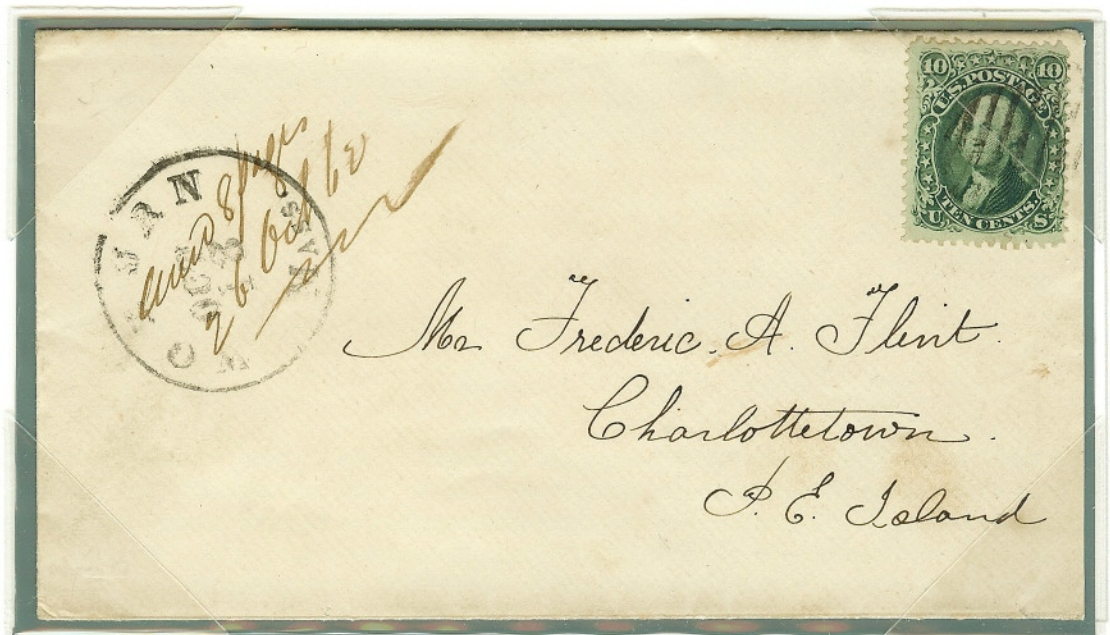 10 10
U.S. POSTAGE
TEN CENTS.
U. S.
OCT
MASS
26 Oct
Mr Frederic. A. Flint.
Charlottetown.
P. E. Island